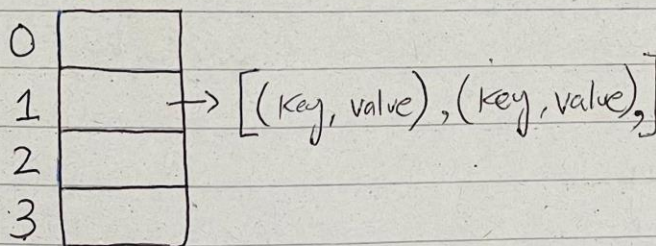 0
1 → [(key, value), (key, value),]
2
3